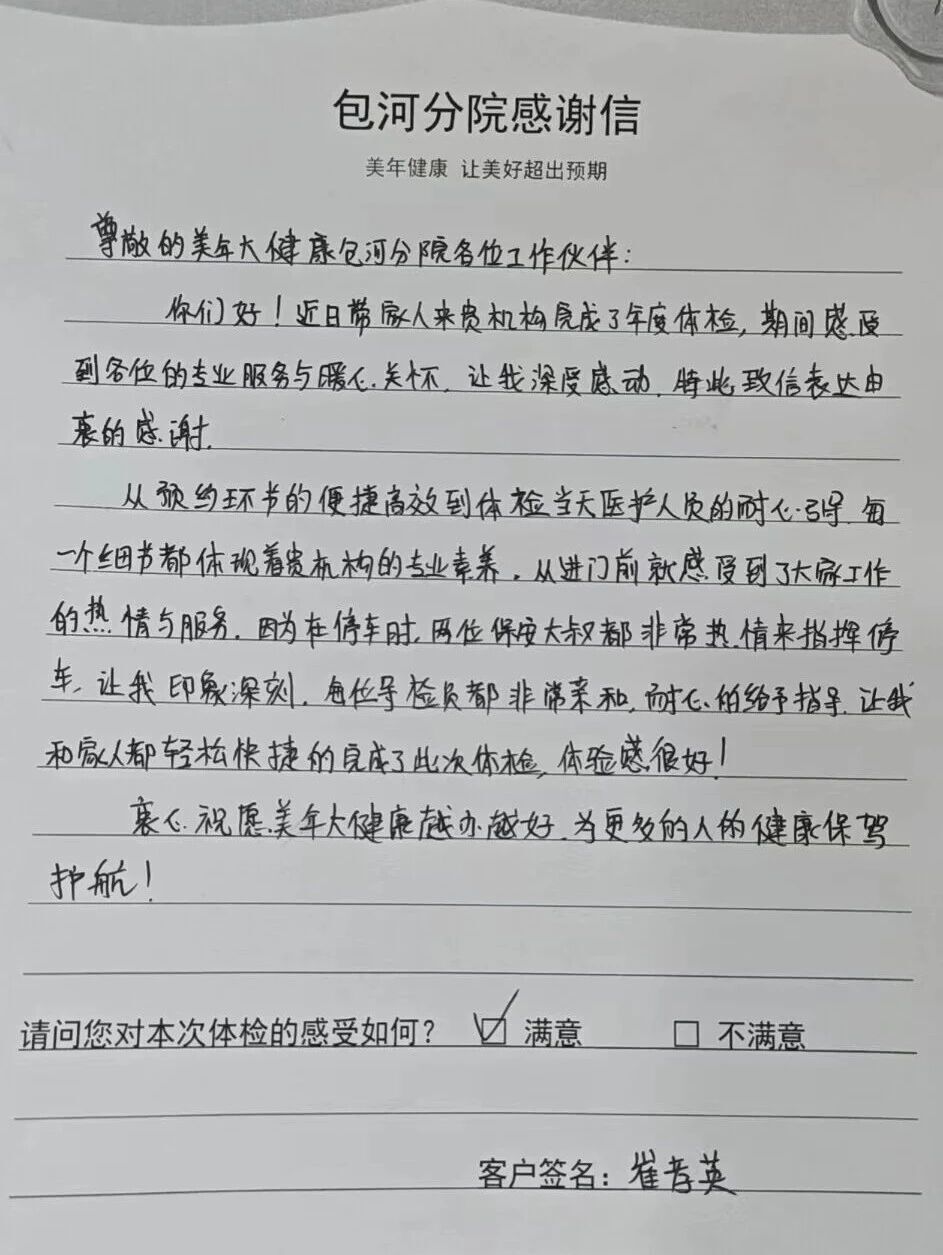 包河分院感谢信
美年健康 让美好超出预期
尊敬的美年大健康包河分院各位工作伙伴：
你们好！近日带家人来贵机构完成了年度体检，期间感受
到各位的专业服务与暖心关怀，让我深受感动，特此致信表达由
衷的感谢。
从预约环节的便捷高效到体检当天医护人员的耐心引导，每
一个细节都体现着贵机构的专业素养。从进门前就感受到了大家工作
的热情与服务。因为在停车时，两位保安大叔都非常热情来指挥停
车，让我印象深刻。每位导检员都非常亲和，耐心的给予指导，让我
和家人都轻松快捷的完成了此次体检，体验感很好！
衷心祝愿美年大健康越办越好，为更多的人的健康保驾
护航！
请问您对本次体检的感受如何？ ☑ 满意 □ 不满意
客户签名：崔孝英